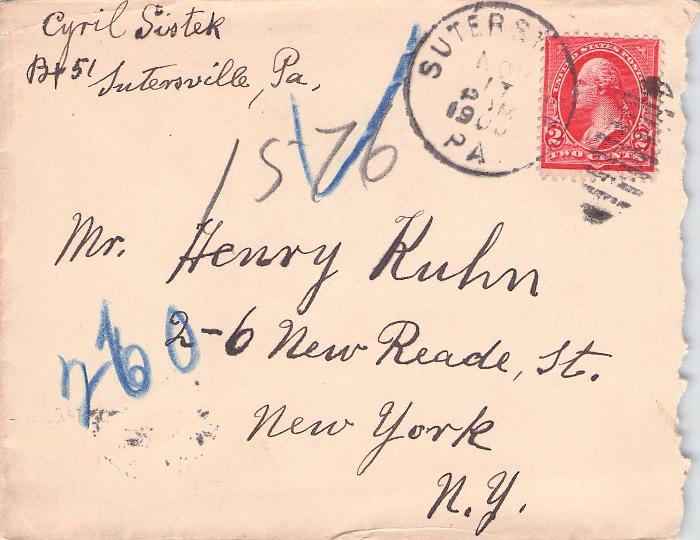 Cyril Sistek
Bx 51 Sutersville, Pa.
SUTERS
17
PM
PA.
UNITED STATES POSTAGE
2 2
TWO CENTS
1576
Mr. Henry Kuhn
2-6 New Reade, St.
New York
N.Y.
260